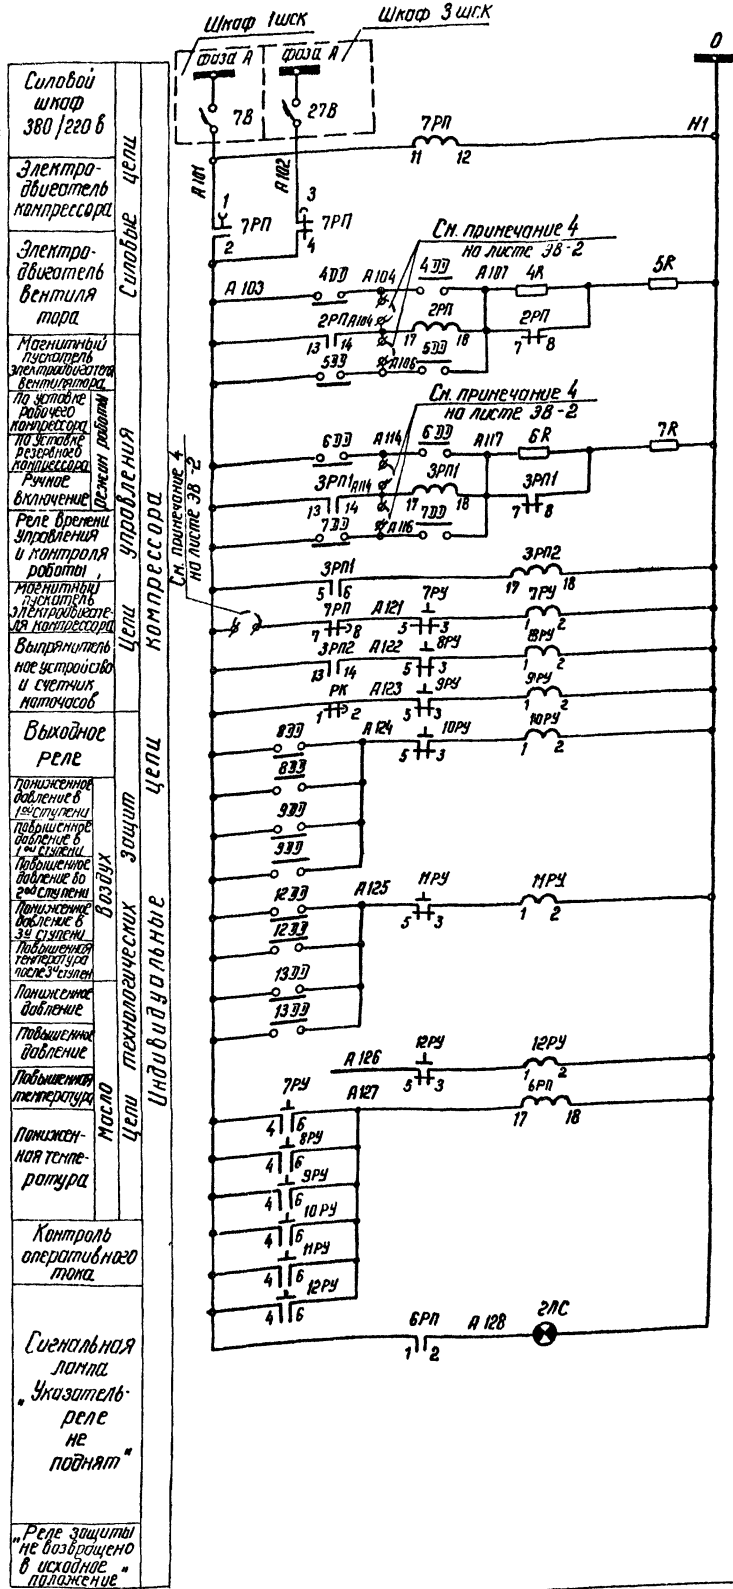 Шкаф 1шск
Шкаф 3 шск
фаза А
фаза А
0
7В
27В
7РП
Н1
11
12
А101
А102
1
3
7РП
7РП
2
4
См. примечание 4
на листе ЭВ-2
А103
4DD
А104
4DD
А107
4R
5R
2РП
А104
2РП
2РП
13
14
17
18
7
8
5DD
А106
5DD
См. примечание 4
на листе ЭВ-2
6DD
А114
6DD
А117
6R
7R
3РП1
А114
3РП1
3РП1
13
14
17
18
7
8
7DD
А116
7DD
См. примечание 4
на листе ЭВ-2
3РП1
3РП2
5
6
17
18
7РП
А121
7РУ
7РУ
7
8
5
3
1
2
3РП2
А122
8РУ
8РУ
13
14
5
3
1
2
РК
А123
9РУ
9РУ
1
2
5
3
1
2
8DD
А124
10РУ
10РУ
5
3
1
2
8DD
9DD
9DD
12DD
А125
11РУ
11РУ
5
3
1
2
12DD
13DD
13DD
А126
12РУ
12РУ
5
3
1
2
7РУ
А127
6РП
4
6
17
18
8РУ
4
6
9РУ
4
6
10РУ
4
6
11РУ
4
6
12РУ
4
6
6РП
А128
2ЛС
1
2
Силовой
шкаф
380/220 в
Электро-
двигатель
компрессора
Электро-
двигатель
вентиля
тора
Силовые цепи
Магнитный
пускатель
электродвигателя
вентилятора
По уставке
рабочего
компрессора
По уставке
резервного
компрессора
Ручное
включение
Режим работы
Реле времени
управления
и контроля
работы
Магнитный
пускатель
электродвигате-
ля компрессора
Выпрямитель
ное устройство
и счетчик
моточасов
Цепи управления
Выходное
реле
Пониженное
давление в
1ой ступени
Повышенное
давление в
1ой ступени
Повышенное
давление во
2ой ступени
Пониженное
давление в
3й ступени
Повышенная
температура
после 3й ступен
Воздух
Пониженное
давление
Повышенное
давление
Повышенная
температура
Понижен-
ная темпе-
ратура
Масло
Цепи технологических защит
Индивидуальные цепи компрессора
Контроль
оперативного
тока
Сигнальная
лампа
„Указатель-
реле
не
поднят"
„Реле защиты
не возвращено
в исходное
положение"